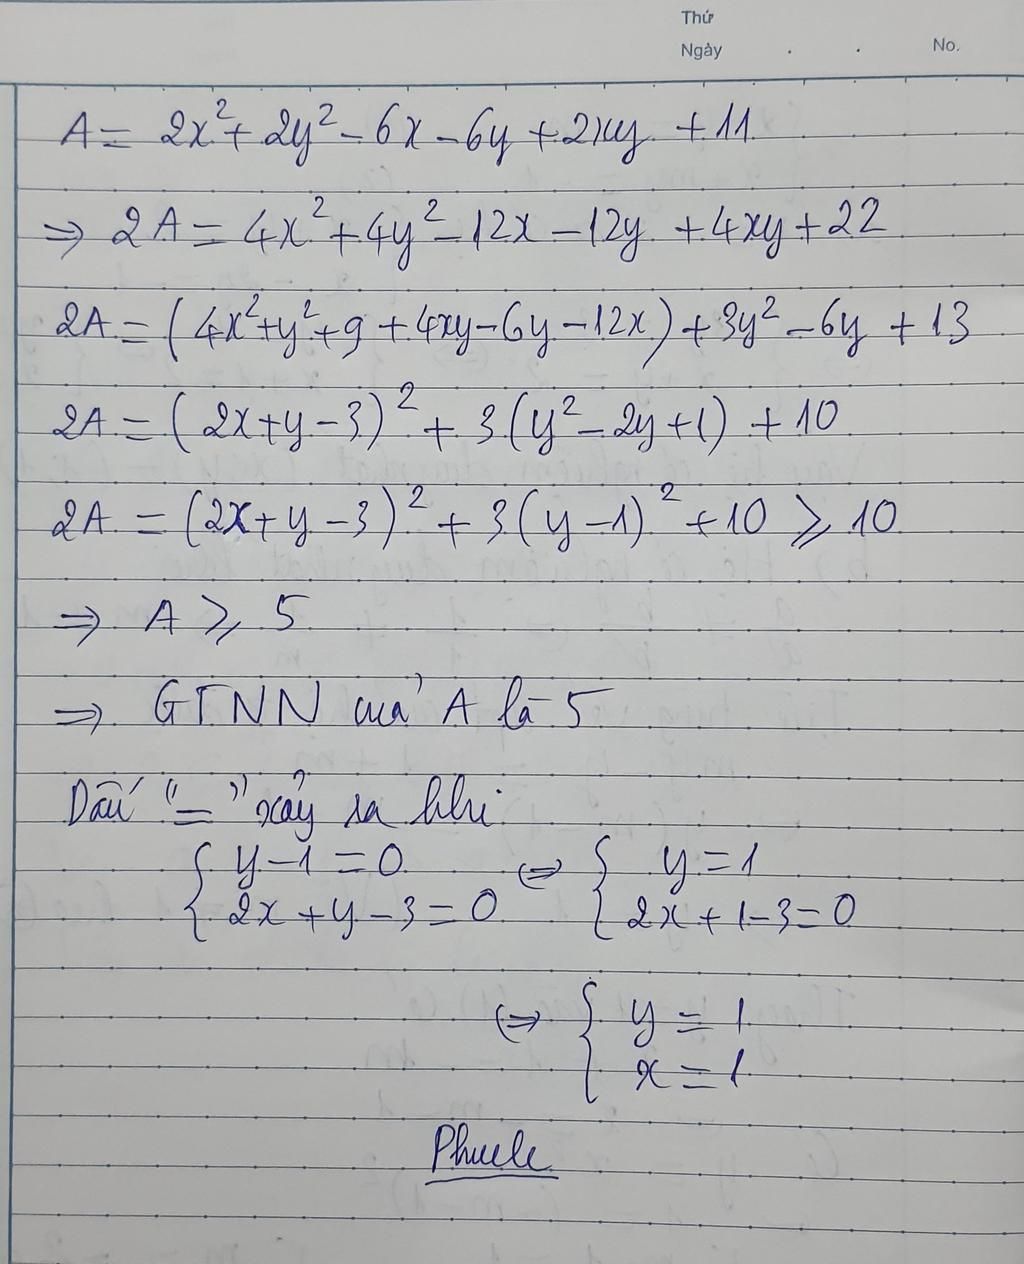 Thứ
Ngày . . No.
A = 2x² + 2y² - 6x - 6y + 2xy + 11
⇒ 2A = 4x² + 4y² - 12x - 12y + 4xy + 22
2A = (4x² + y² + 9 + 4xy - 6y - 12x) + 3y² - 6y + 13
2A = (2x + y - 3)² + 3(y² - 2y + 1) + 10
2A = (2x + y - 3)² + 3(y - 1)² + 10 ⩾ 10
⇒ A ⩾ 5
⇒ GTNN của A là 5
Dấu "=" xảy ra khi
{ y - 1 = 0 ⇔ { y = 1
{ 2x + y - 3 = 0 { 2x + 1 - 3 = 0
⇔ { y = 1
{ x = 1
Phucle